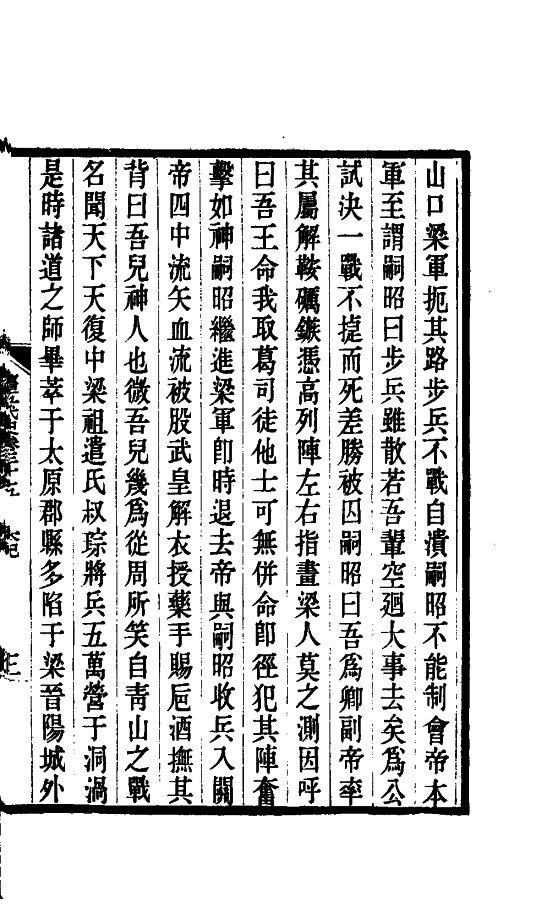 山口梁軍扼其路步兵不戰自潰嗣昭不能制會帝本
軍至謂嗣昭曰步兵雖散若吾輩空廻大事去矣爲公
試決一戰不捷而死差勝被囚嗣昭曰吾爲卿副帝率
其屬解鞍礪鏃憑高列陣左右指畫梁人莫之測因呼
曰吾王命我取葛司徒他士可無併命卽徑犯其陣奮
擊如神嗣昭繼進梁軍卽時退去帝與嗣昭收兵入關
帝四中流矢血流被股武皇解衣授藥手賜巵酒撫其
背曰吾兒神人也微吾兒幾爲從周所笑自靑山之戰
名聞天下天復中梁祖遣氏叔琮將兵五萬營于洞渦
是時諸道之師畢萃于太原郡縣多陷于梁晉陽城外
三